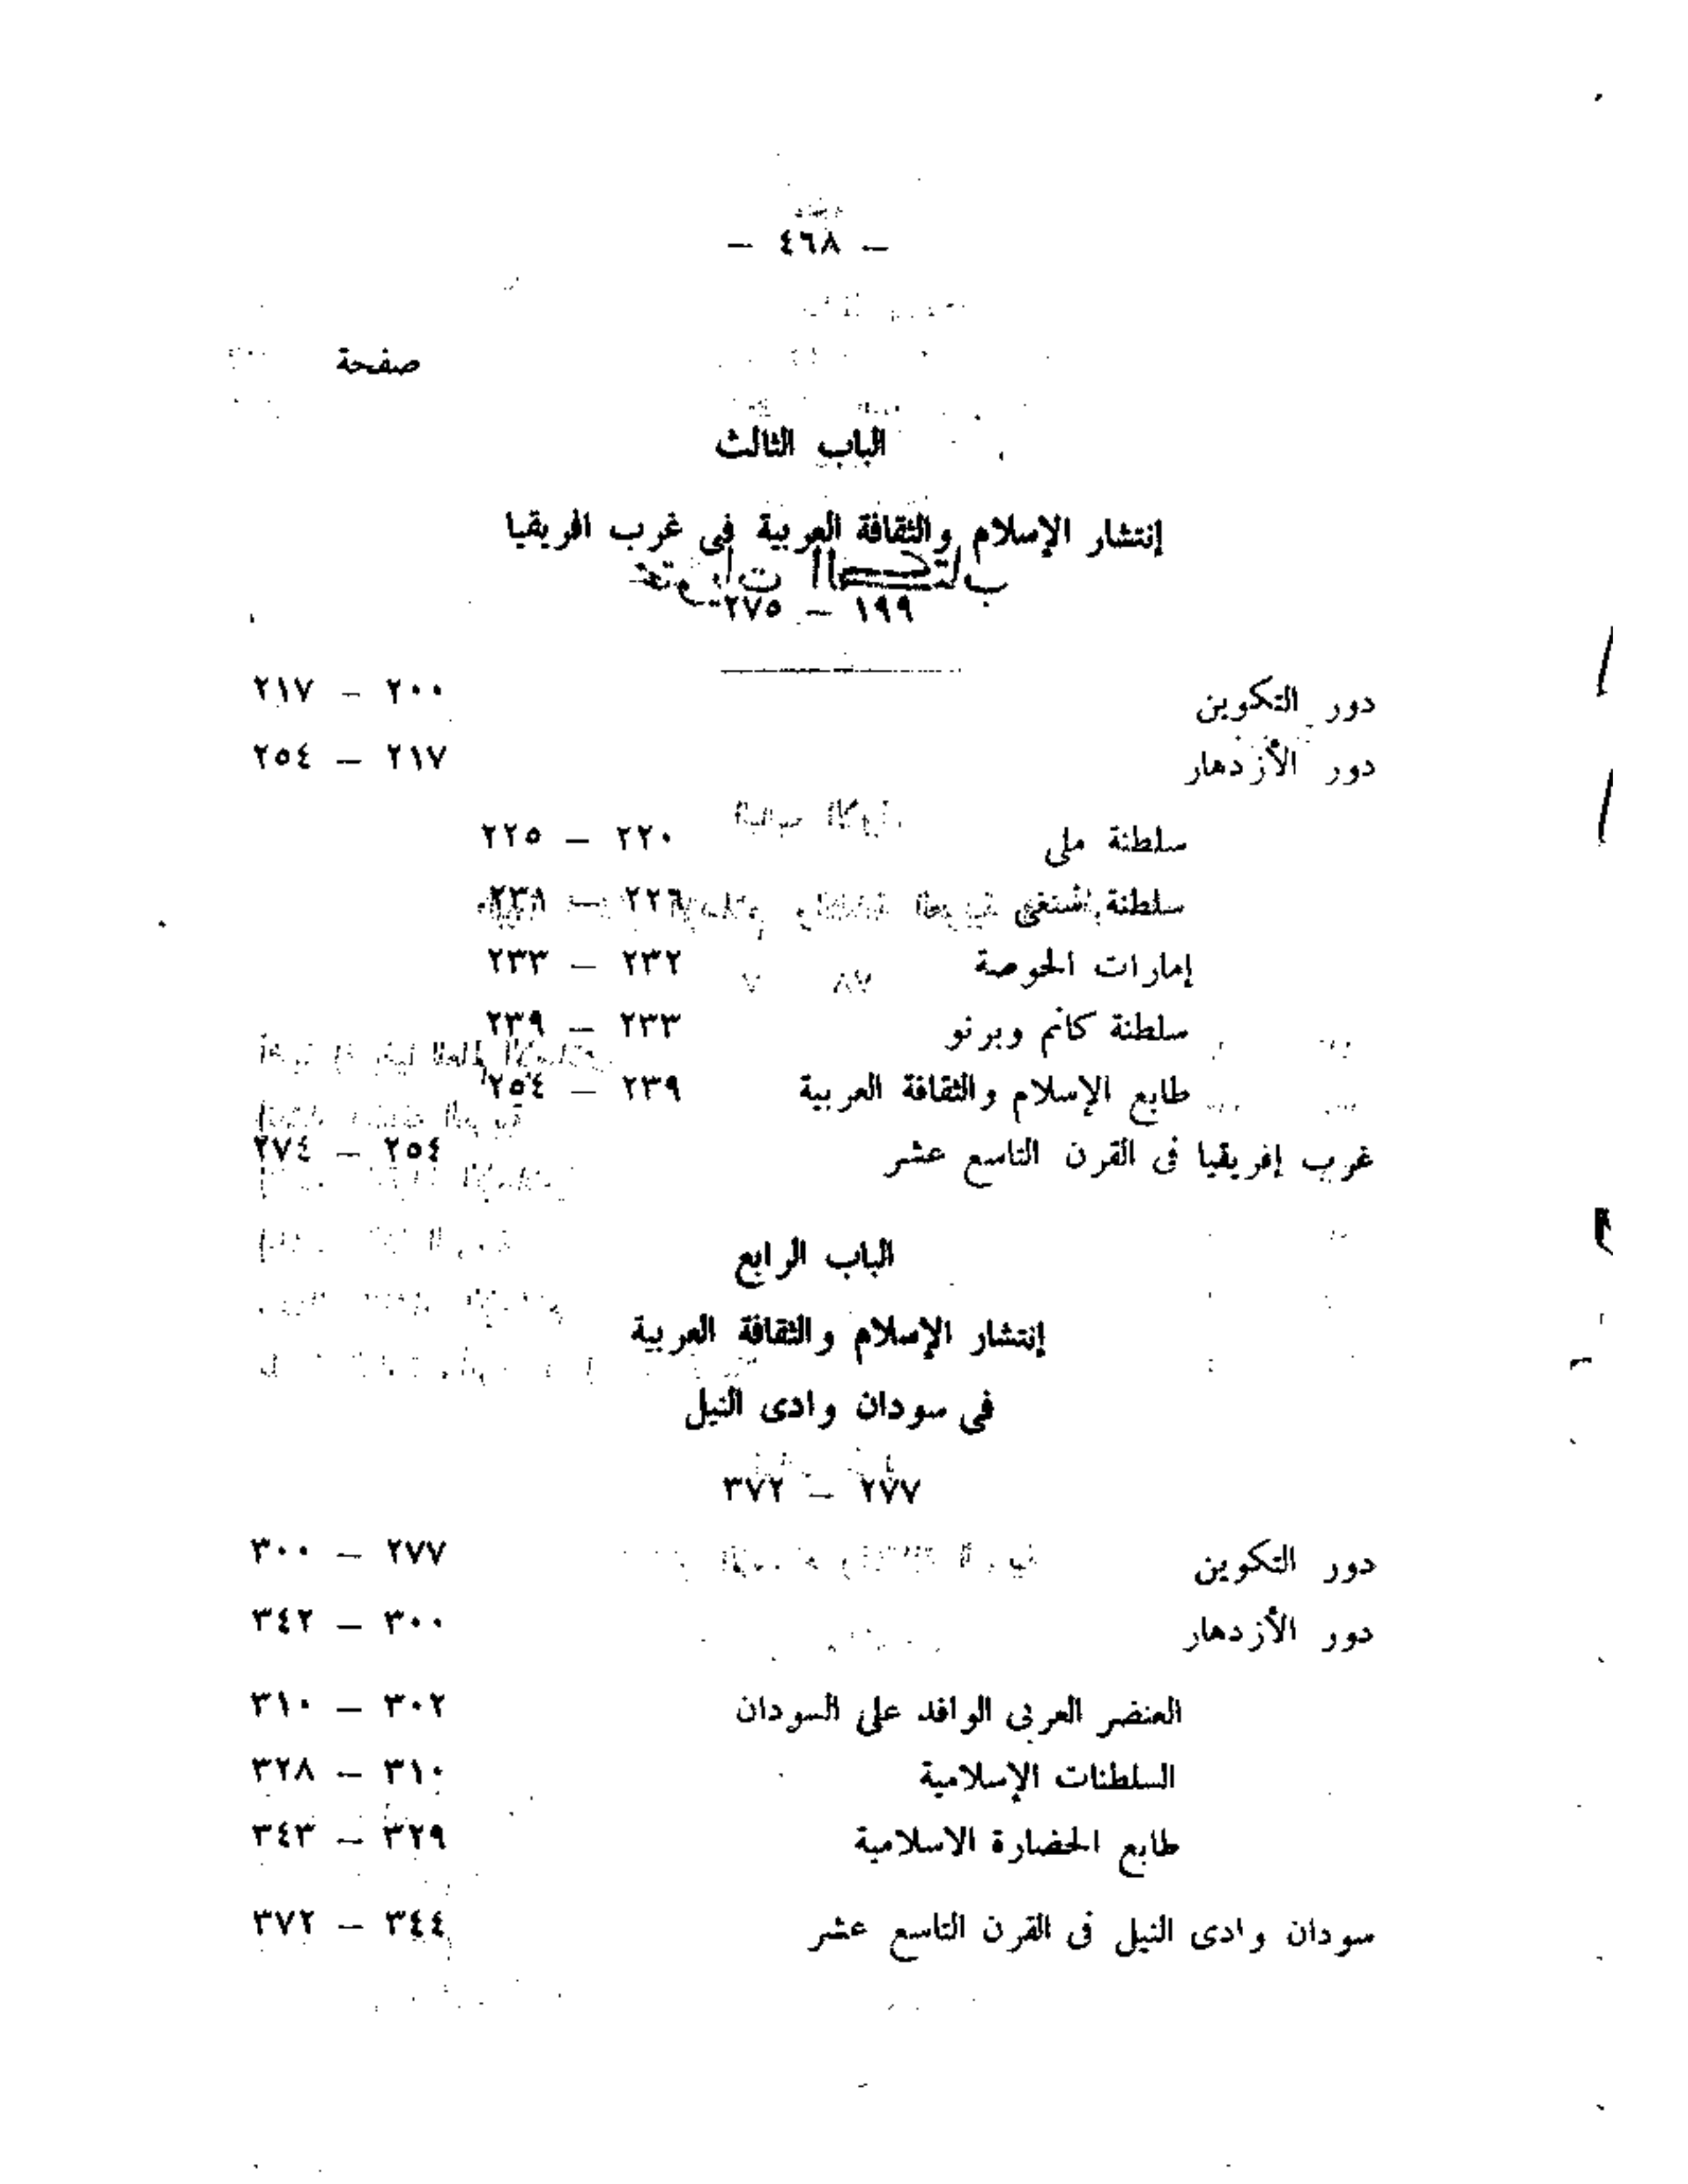 — ٤٦٨ —
صفحة
الباب الثالث
إنتشار الإسلام والثقافة العربية في غرب افريقيا
١٩٩ — ٢٧٥
دور التكوين ٢٠٠ — ٢١٧
دور الأزدهار ٢١٧ — ٢٥٤
سلطنة ملى ٢٢٠ — ٢٢٥
سلطنة ٢٢٦ —
إمارات الحوصة ٢٣٢ — ٢٣٣
سلطنة كانم وبرنو ٢٣٣ — ٢٣٩
طابع الإسلام والثقافة العربية ٢٣٩ — ٢٥٤
غرب إفريقيا فى القرن التاسع عشر ٢٥٤ — ٢٧٤
الباب الرابع
إنتشار الإسلام والثقافة العربية
في سودان وادى النيل
٢٧٧ — ٣٧٢
دور التكوين ٢٧٧ — ٣٠٠
دور الأزدهار ٣٠٠ — ٣٤٢
العنضر العربى الوافد على السودان ٣٠٢ — ٣١٠
السلطنات الإسلامية ٣١٠ — ٣٢٨
طابع الحضارة الاسلامية ٣٢٩ — ٣٤٣
سودان وادى النيل فى القرن التاسع عشر ٣٤٤ — ٣٧٢